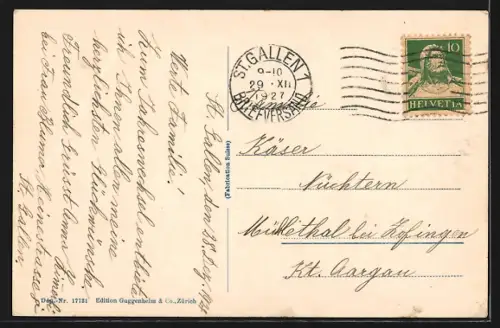 St. Gallen, den 28. Dez. 1927
Werte Familie!
Zum Jahreswechsel entbiete
ich Ihnen allen meine
herzlichsten Glückwünsche
Freundlich Grüsst Emma
bei Frau Blumer
St. Gallen
Dep.-Nr. 17131 Edition Guggenheim & Co., Zürich
(Fabrication Suisse)
ST. GALLEN 1
9-10
29. XII
1927
BRIEFVERSAND
10
HELVETIA
Familie
Käser
Nüchtern
Mühlethal bei Zofingen
Kt. Aargau